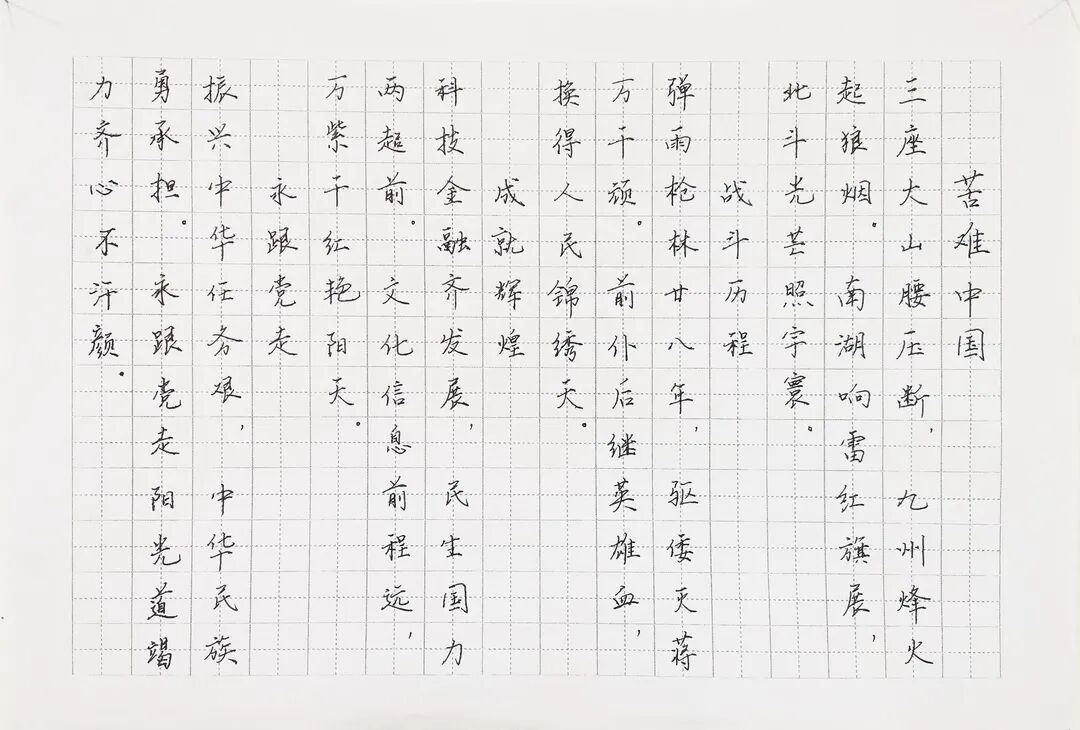 苦难中国
三座大山腰压断，九州烽火
起狼烟。南湖响雷红旗展，
北斗光芒照宇寰。
战斗历程
弹雨枪林廿八年，驱倭灭蒋
万千顽。前仆后继英雄血，
换得人民锦绣天。
成就辉煌
科技金融齐发展，民生国力
两超前。文化信息前程远，
万紫千红艳阳天。
永跟党走
振兴中华任务艰，中华民族
勇承担。永跟党走阳光道竭
力齐心不汗颜。